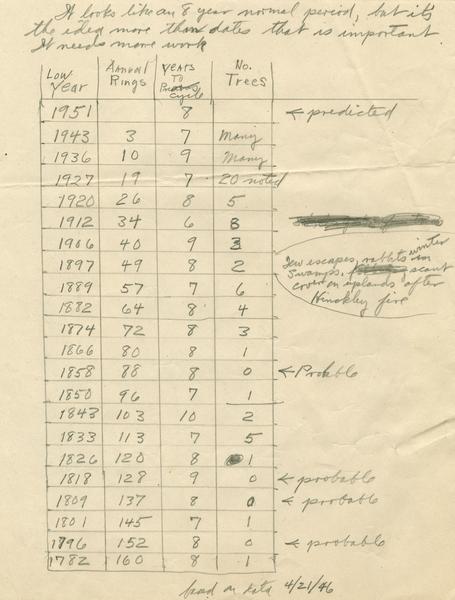 It looks like an 8 year normal period, but it's
the idea more than dates that is important
It needs more work
Low Year Annual Rings Years To Cycle No. Trees
1951 8 ← predicted
1943 3 7 Many
1936 10 9 Many
1927 19 7 20 noted
1920 26 8 5
1912 34 6 8
1906 40 9 3
1897 49 8 2
1889 57 7 6
1882 64 8 4
1874 72 8 3
1866 80 8 1
1858 88 8 0 ← Probable
1850 96 7 1
1843 103 10 2
1833 113 7 5
1826 120 8 1
1818 128 9 0 ← probable
1809 137 8 0 ← probable
1801 145 7 1
1796 152 8 0 ← probable
1782 160 8 1
Few escapes, rabbits in winter
swamps, scant
cover on uplands after
Hinckley fire
based on data 4/21/46